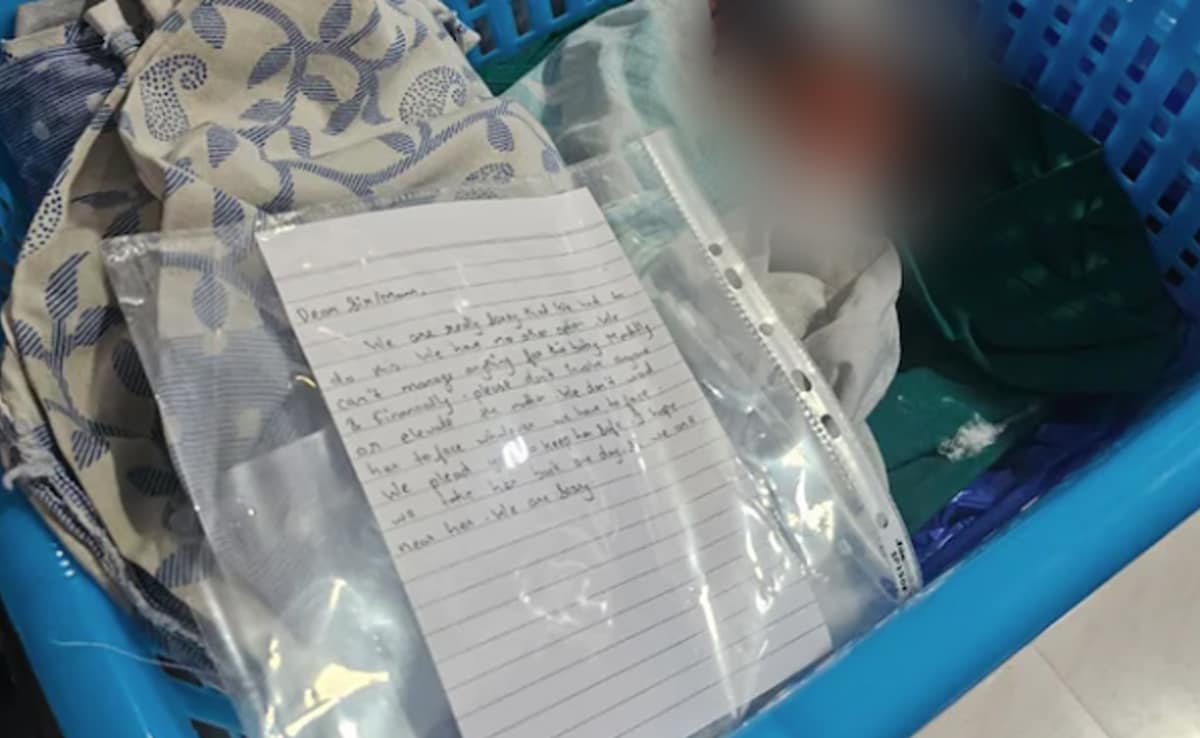 Dear Sir/Mam,
We are really sorry that we had to
do this. We have no other option. We
can't manage anything for the baby Mentally
& financially. please don't involve anyone
or elevate the matter. We don't want
her to face whatever we have to face.
We plead you to keep her safe. I hope
we take her back one day. If we are
near her. We are sorry